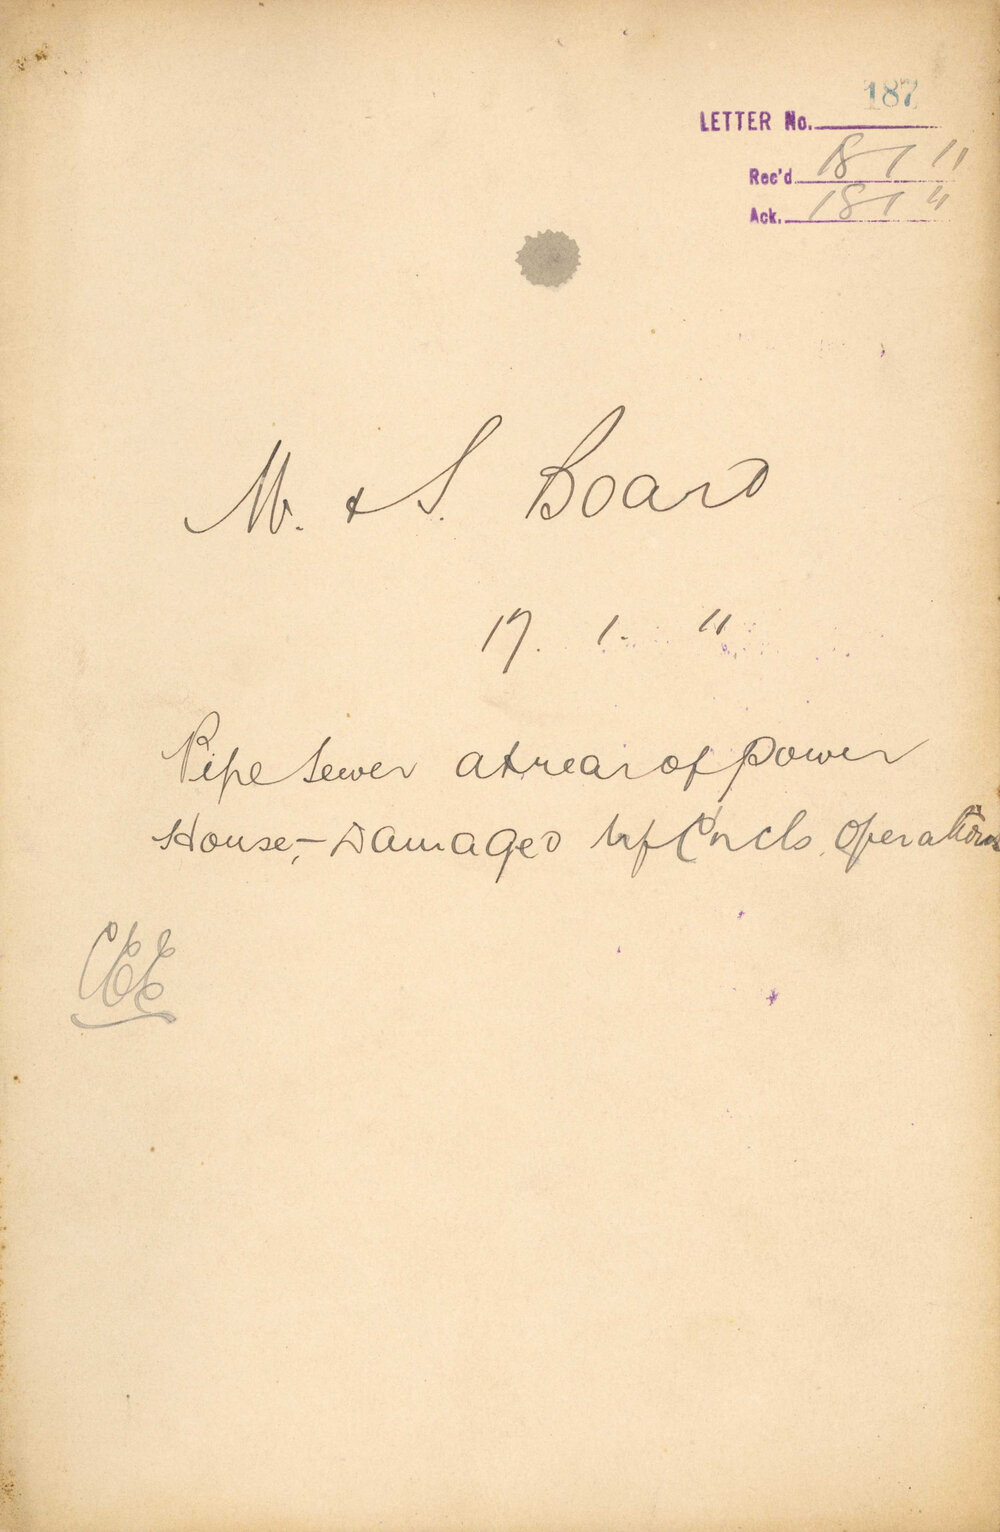 187
LETTER No.
Rec'd 18 1 11
Ack. 18 1 11
W. & S. Board
17. 1. 11
Pipe Sewer at rear of Power
House,- Damaged by C'ncls Operations
CEE